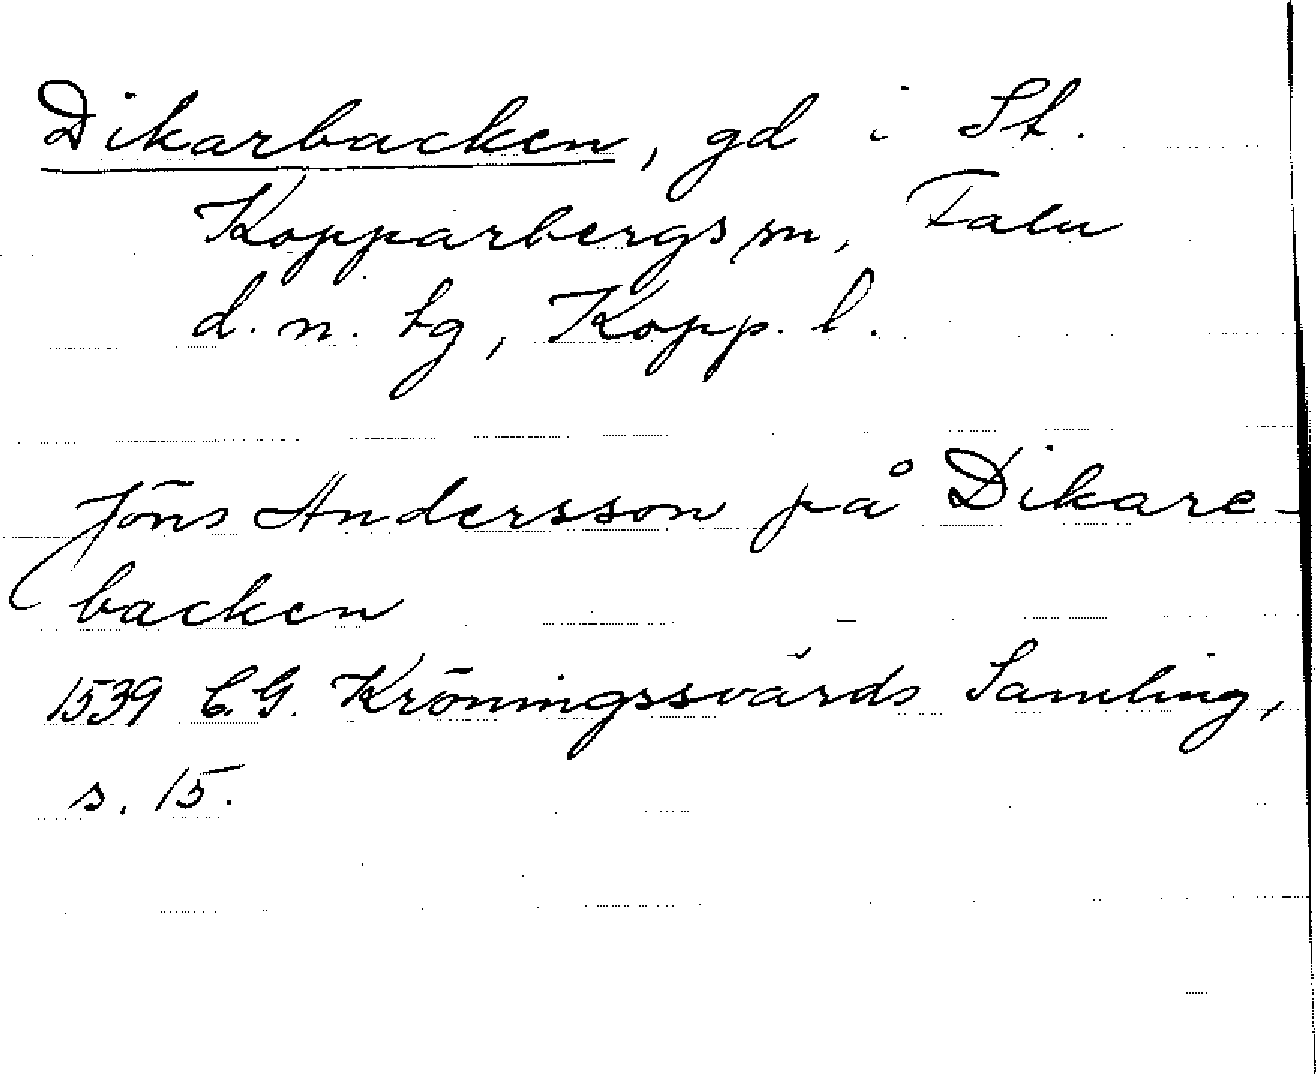 Dikarbacken, gd i St.
Kopparbergs sn, Falu
d. n. tg, Kopp. l.
Jöns Andersson på Dikare-
backen
1539 C.G. Kröningssvärds Samling,
s. 15.